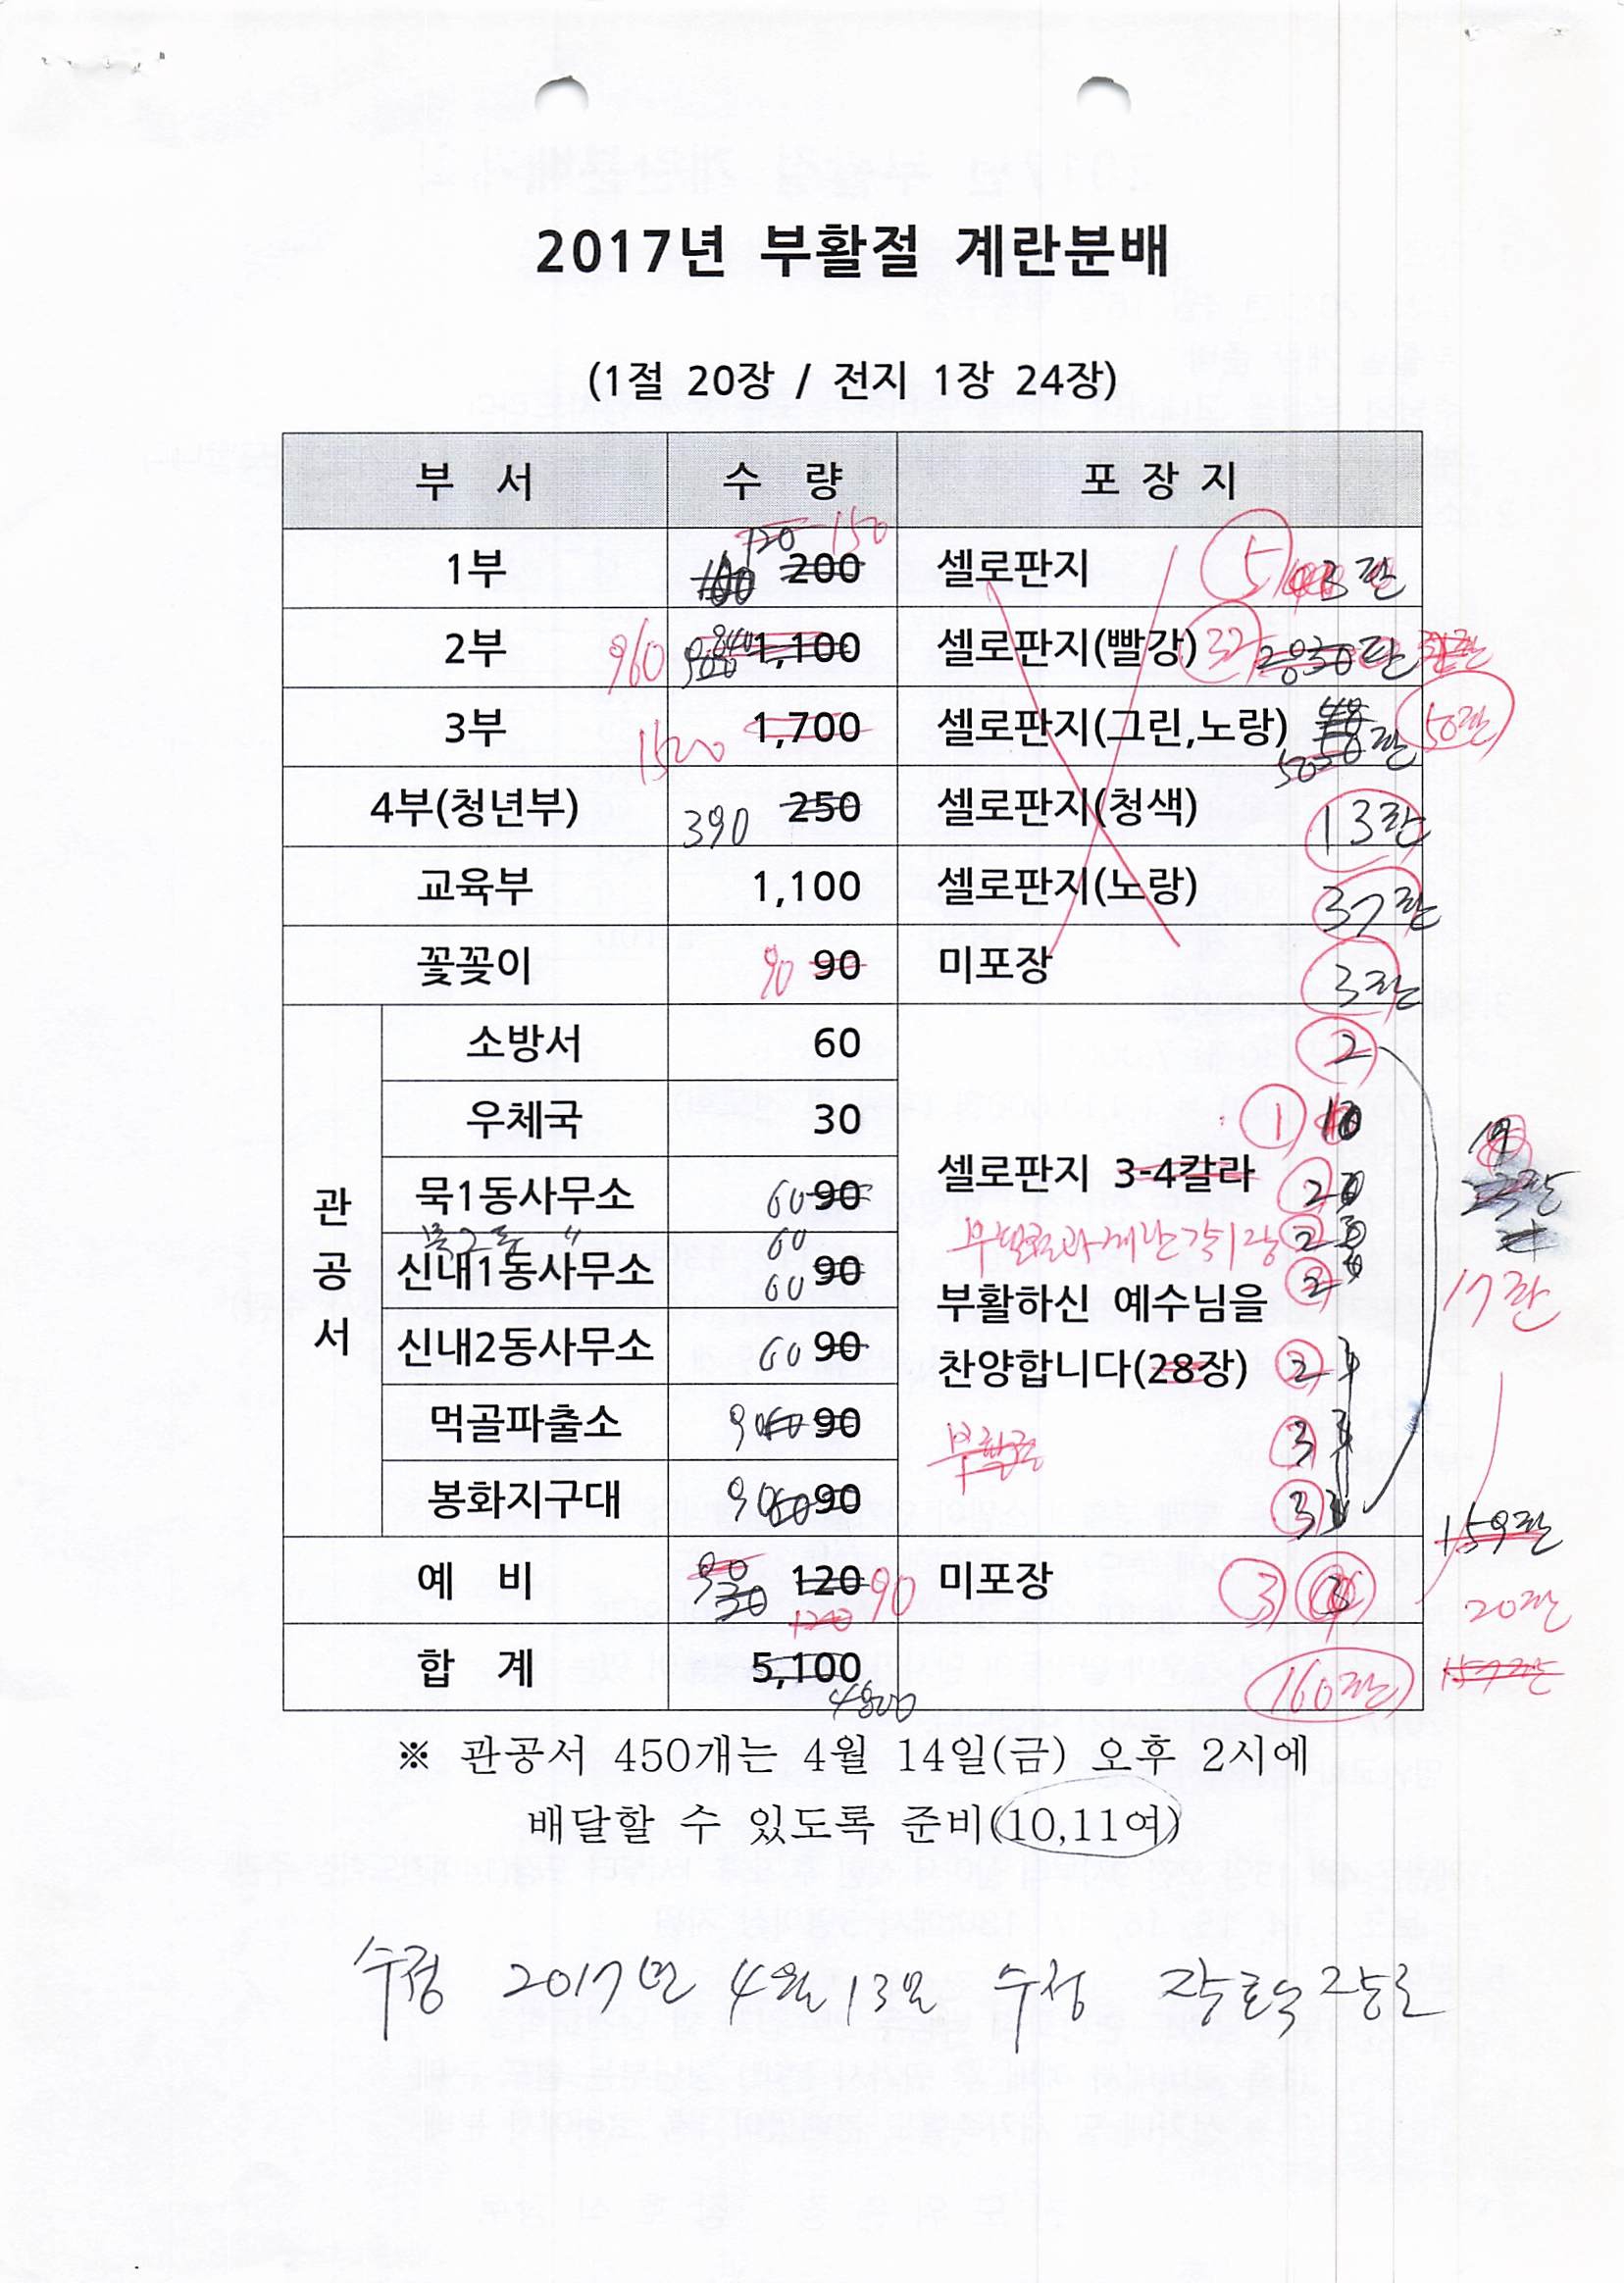 2017년 부활절 계란분배
(1절 20장 / 전지 1장 24장)
부 서 수 량 포 장 지
120 150
1부 100 200 셀로판지 5 3판
2부 960 900 840 1,100 셀로판지(빨강) 32 30판
3부 1520 1,700 셀로판지(그린,노랑) 50판 50판
4부(청년부) 390 250 셀로판지(청색) 13판
교육부 1,100 셀로판지(노랑) 37판
꽃꽂이 90 90 미포장 3판
관공서
소방서 60 2
우체국 30 1
묵1동사무소 60 90 셀로판지 3-4칼라 2
묵2동 〃 60 계란 각1장 2
신내1동사무소 60 90 부활하신 예수님을 2
17판
신내2동사무소 60 90 찬양합니다(28장) 2
먹골파출소 90 60 90 3
봉화지구대 90 60 90 3
159판
예 비 90 30 120 90 미포장 3
120
20판
합 계 5,100 160판 157판
4800
※ 관공서 450개는 4월 14일(금) 오후 2시에
배달할 수 있도록 준비(10,11여)
수정 2017년 4월 13일 수정 장로